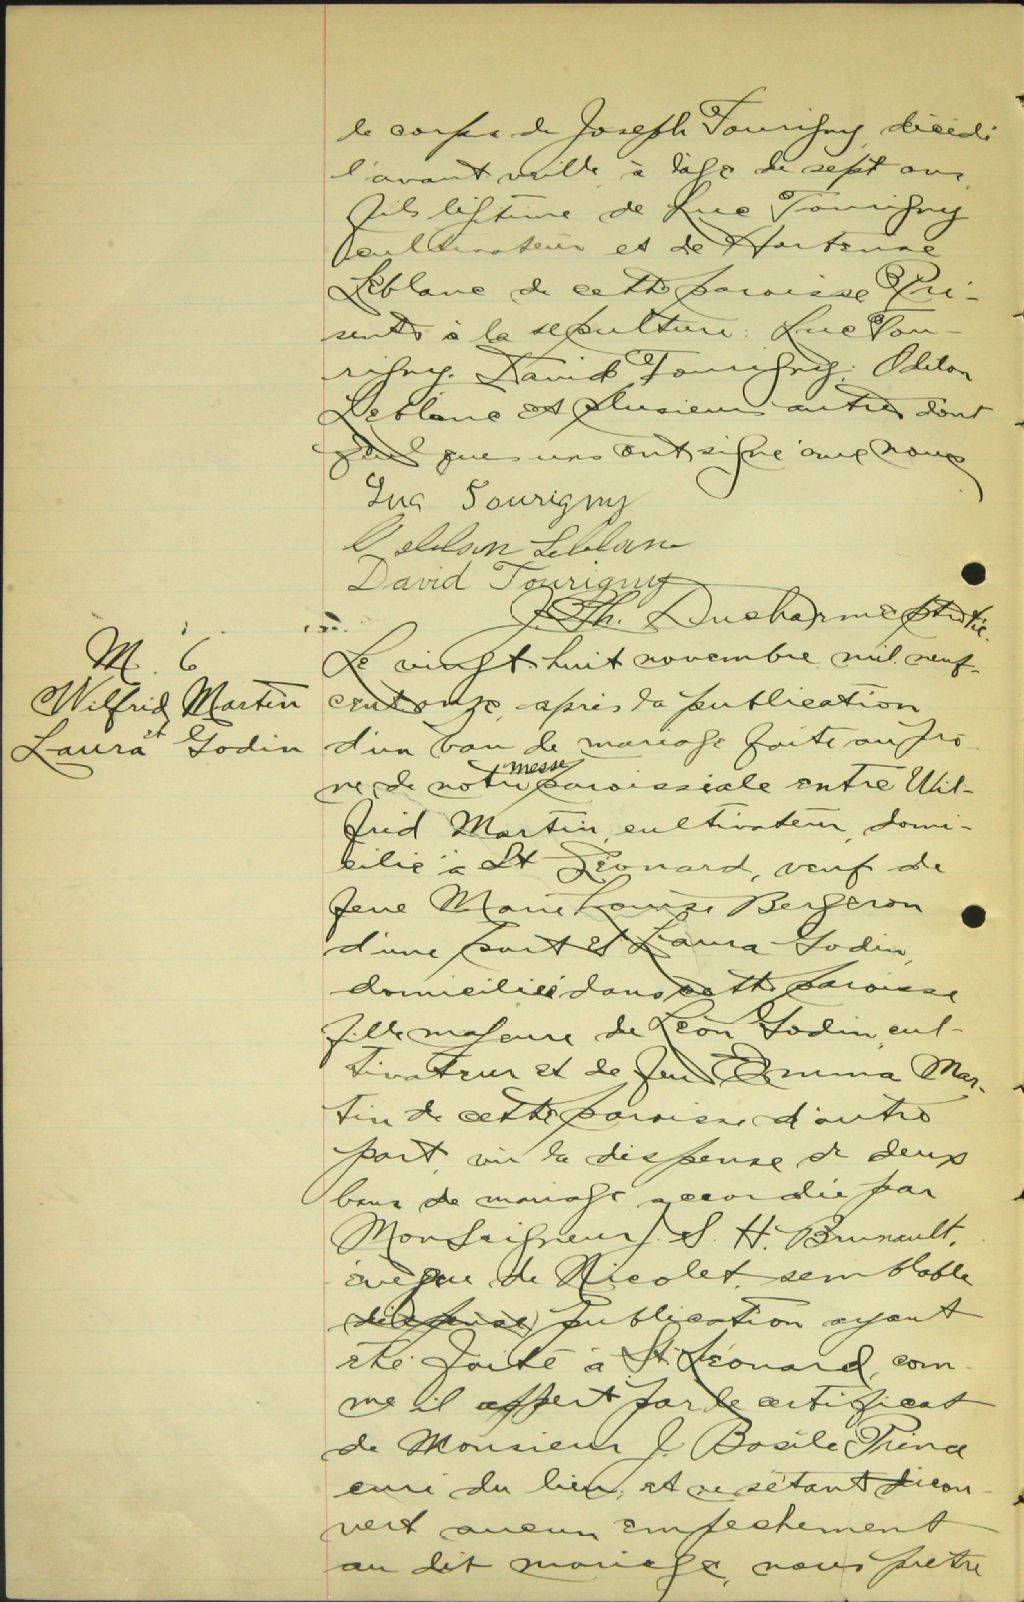 le corps de Joseph Tourigny, décédé
l'avant veille, à l'âge de sept ans
fils légitime de Luc Tourigny
cultivateur et de Hortense
Leblanc de cette paroisse. Pré-
sents à la sépulture: Luc Tou-
rigny. David Tourigny, Odilon
Leblanc et plusieurs autres dont
quelques uns ont signé avec nous
Luc Tourigny
Leblanc
David Tourigny
J. Th. Ducharme ptre
M. 6
Wilfrid Martin
et
Laura Godin
Le vingt huit novembre mil neuf-
cent onze, après la publication
d'un ban de mariage faite au prô
ne de notre messe paroissiale entre Wil-
frid Martin, cultivateur, domi-
cilié à St Léonard, veuf de
feue Marie Louise Bergeron
d'une part et Laura Godin,
domiciliée dans cette paroisse
fille majeure de Léon Godin, cul-
tivateur et de feu Emma Mar-
tin de cette paroisse d'autre
part, vu la dispense de deux
bans de mariage accordée par
Monseigneur J. S. H. Brunault,
évêque de Nicolet, semblable
dispense publication ayant
été faite à St. Léonard, com-
me il appert par le certificat
de Monsieur J. Basile Prince
curé du lieu; et ne s'étant décou-
vert aucun empêchement
au dit mariage, nous prêtre